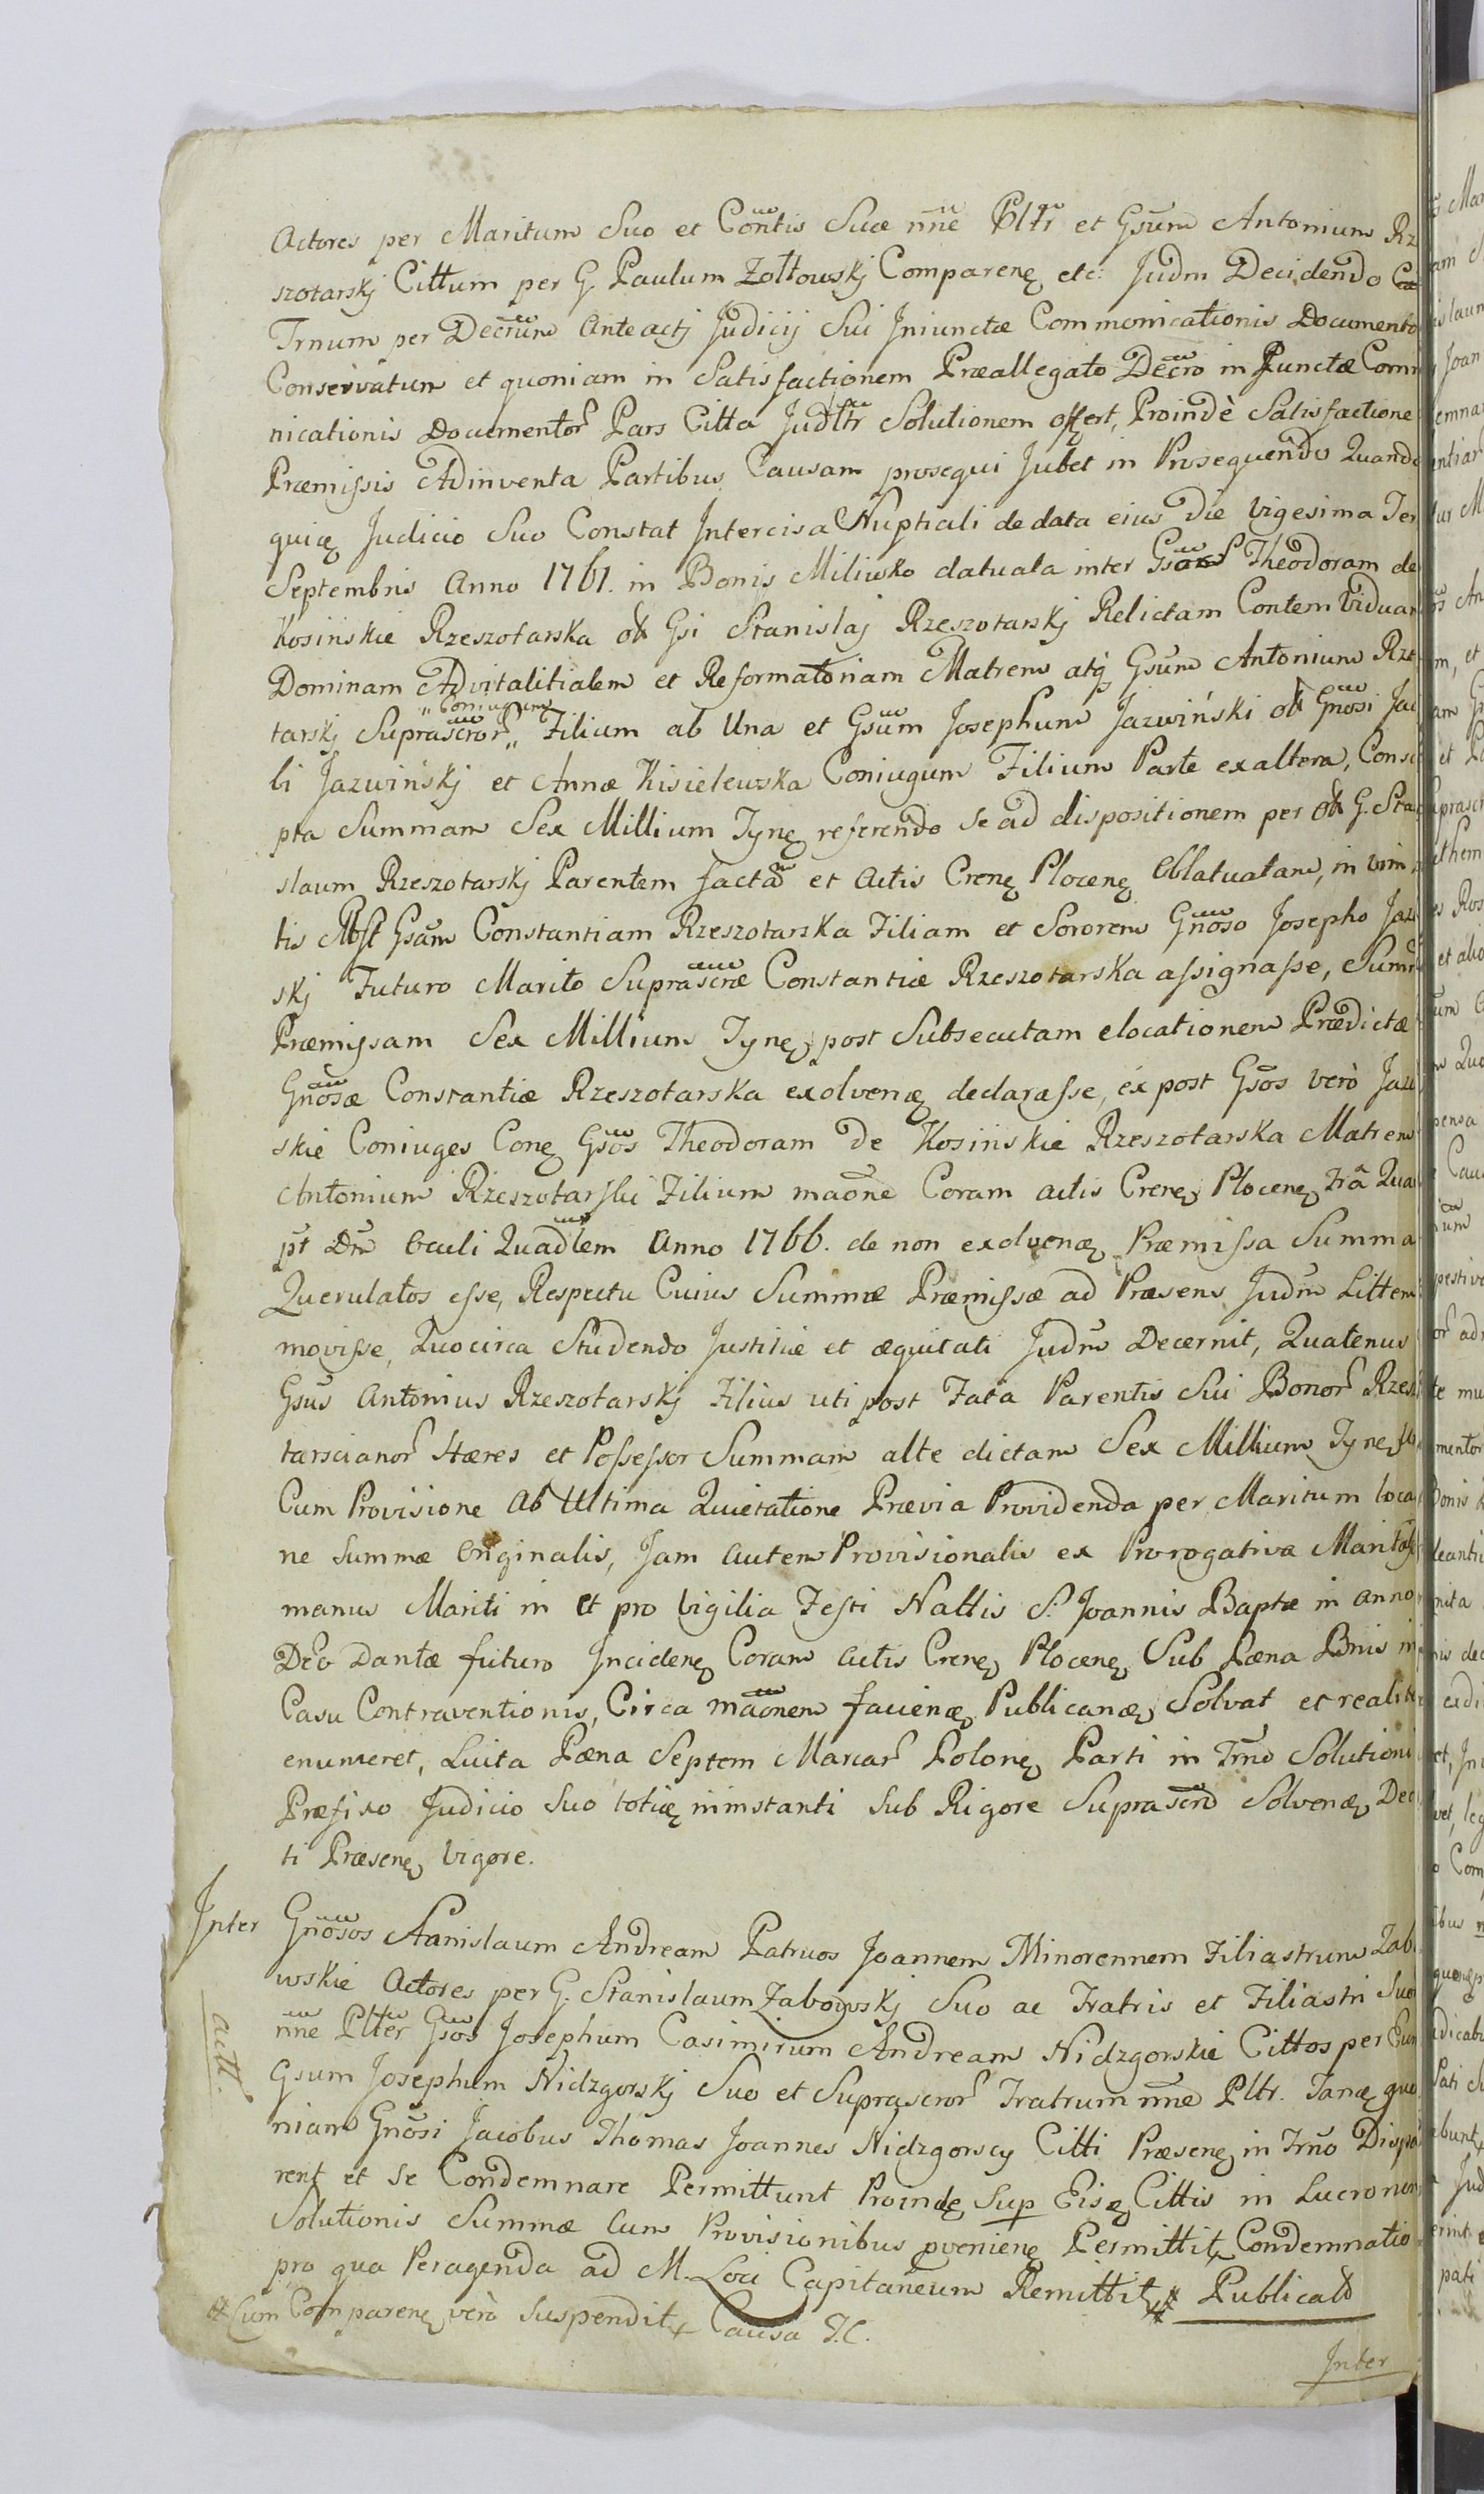 Actores per Maritum Suo et Contis Suæ nñe Pltr et Gsum Antonium Rz
szotarskj Cittum per G. Paulum Zołtowskj Comparenę etc: Judm Decidendo
Trnum per Decrum anteactj Judicij Sui Iniunctæ Communicationis Documento
Conservatum et quoniam in Satisfactionem Præallegato Decro injunctæ Com
nicationis Documentor Pars Citta Judltr Solutionem offert, Proindè Satisfactione
Præmissis Adinventa Partibus Causam prosequi Jubet in Prosequendo Quando
quię Judicio Suo Constat Intercisa Nuptiali de data eius die vigesima Ter
Septembris Anno 1761. in Bonis Miliwsko datuata inter Gsos Theodoram de
Kosińskie Rzeszotarska olt Gsi Stanislaj Rzeszotarskj Relictam Contem Viduam
Dominam Advitalitialem et Reformatoriam Matrem atq Gsum Antonium Rze
tarskj Suprascror „Coniugum„ Filium ab Una et Gsum Josephum Jazwiński olt Gnosi Jac
li Jazwińskj et Annæ Kisielewska Coniugum Filium Parte exaltera, Consc
pta Summam Sex Millium Tynę referendo se ad dispositionem per olt G. Sta
slaum Rzeszotarskj Parentem facta et Actis Crenę Plocenę Oblatuatam, in vim
tis Gsam Constantiam Rzeszotarska Filiam et Sororem Gnoso Josepho Jaz
skj Futuro Marito Suprascræ Constantiæ Rzeszotarska assignasse, Summ
Præmissam Sex Millium Tynę post Subsecutam elocationem Prædictæ
Gnosæ Constantiæ Rzeszotarska exolvenę declarasse, ex post Gsos verò Jaz
skie Coniuges Conę Gsos Theodoram de Kosińskie Rzeszotarska Matrem
Antonium Rzeszotarski Filium maone Coram actis Crenę Plocenę Fra Qua
pt Dm Oculi Quadlem Anno 1766. de non exolvenę Præmissa Summa
Querulatos esse, Respectu Cuius Summæ Præmissæ ad Præsens Judm Littem
movisse, Quocirca Studendo Justitiæ et æquitati Judm Decernit, Quatenus
Gsus Antonius Rzeszotarskj Filius uti post Fata Parentis Sui Bonor Rzes
tarscianor Hæres et Possessor Summam alte dictam Sex Millium Tynę
Cum Provisione ab Ultima Quietatione Prævia Providenda per Maritum loca
ne Summæ Originalis, Jam autem Provisionalis ex Prorogativa Maritali
manus Mariti in et pro Vigilia Festi Nattis S. Joannis Baptæ in anno
Deo Dante futuro Incidenę Coram actis Crenę Plocenę Sub Pæna Bnis in
Casu Contraventionis, Circa maonem facienę Publicanę Solvat et realite
enumeret, Luita Pæna Septem Marcar Polonę Parti in Trno Solutioni
Præfixo Judicio Suo totię ininstanti Sub Rigore Suprascro Solvenę Dec
ti Præsenę Vigore.
Inter Gnosos Stanislaum Andream Patruos Joannem Minorennem Filiastrum Zab
wskie Actores per G. Stanislaum Zabowskj Suo ac Fratris et Filiastri Suo
actt.
nñe Plter Gsos Josephum Casimirum Andream Nidzgorskie Cittos per Eun
Gsum Josephum Nidzgorskj Suo et Suprascror Fratrum nñe Pltr. Tanę quo
niam Gnosi Jacobus Thomas Joannes Nidzgorscy Citti Præsenę in Trno Dispa
rent et se Condemnare Permittunt Proindę Sup Eisę Cittis in Lucro non
Solutionis Summæ Cum Provisionibus pvenienę Permittit Condemnatio
pro qua Peragenda ad M. Loci Capitaneum Remittit # Publicato
# Cum Comparenę verò Suspendit Causa T.C.
Inter